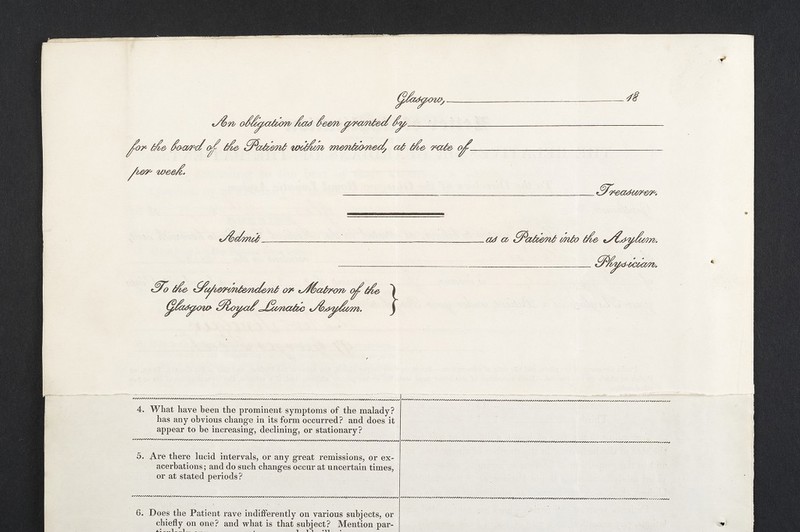 Glasgow, 18
An obligation has been granted by
for the board of the Patient within mentioned, at the rate of
per week.
Treasurer.
Admit as a Patient into the Asylum.
Physician.
To the Superintendent or Matron of the
Glasgow Royal Lunatic Asylum.
4. What have been the prominent symptoms of the malady?
has any obvious change in its form occurred? and does it
appear to be increasing, declining, or stationary?
5. Are there lucid intervals, or any great remissions, or ex-
acerbations; and do such changes occur at uncertain times,
or at stated periods?
6. Does the Patient rave indifferently on various subjects, or
chiefly on one? and what is that subject? Mention par-